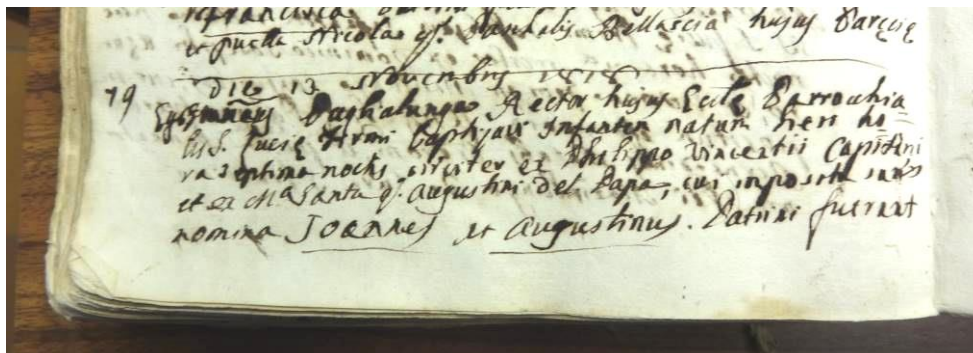 Francisca
et puella Nicolao q. Paschalis Bellascia hujus Parecię
Die 13 Novembris 1818
79 Ego Paghalunga Rector hujus Eccle Parrochia=
lis S. Lucię Firmi baptizavi Infantem natum heri ho=
ra septima noctis circiter ex Philippo Vincentii Capitini
et ex Ma Santa q. Augustini Del Papa, cui imposita sunt
nomina Joannes et Augustinus. Patrini fuerunt